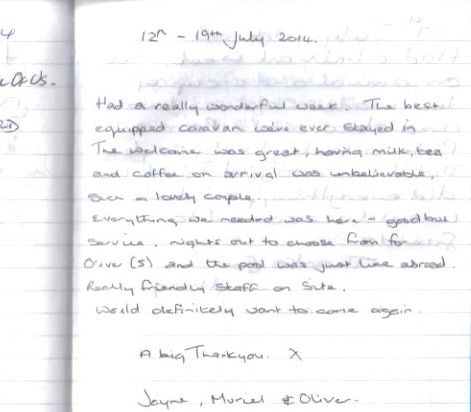 12th - 19th July 2014.
Had a really wonderful week. The best
equipped caravan we've ever stayed in
The welcome was great, having milk, tea
and coffee on arrival was unbelievable,
such a lovely couple.
Everything we needed was here - good bus
service, nights out to choose from for
Oliver (5) and the pool was just like abroad.
Really friendly staff on site.
Would definitely want to come again.
A big Thankyou. X
Jayne, Muriel & Oliver.